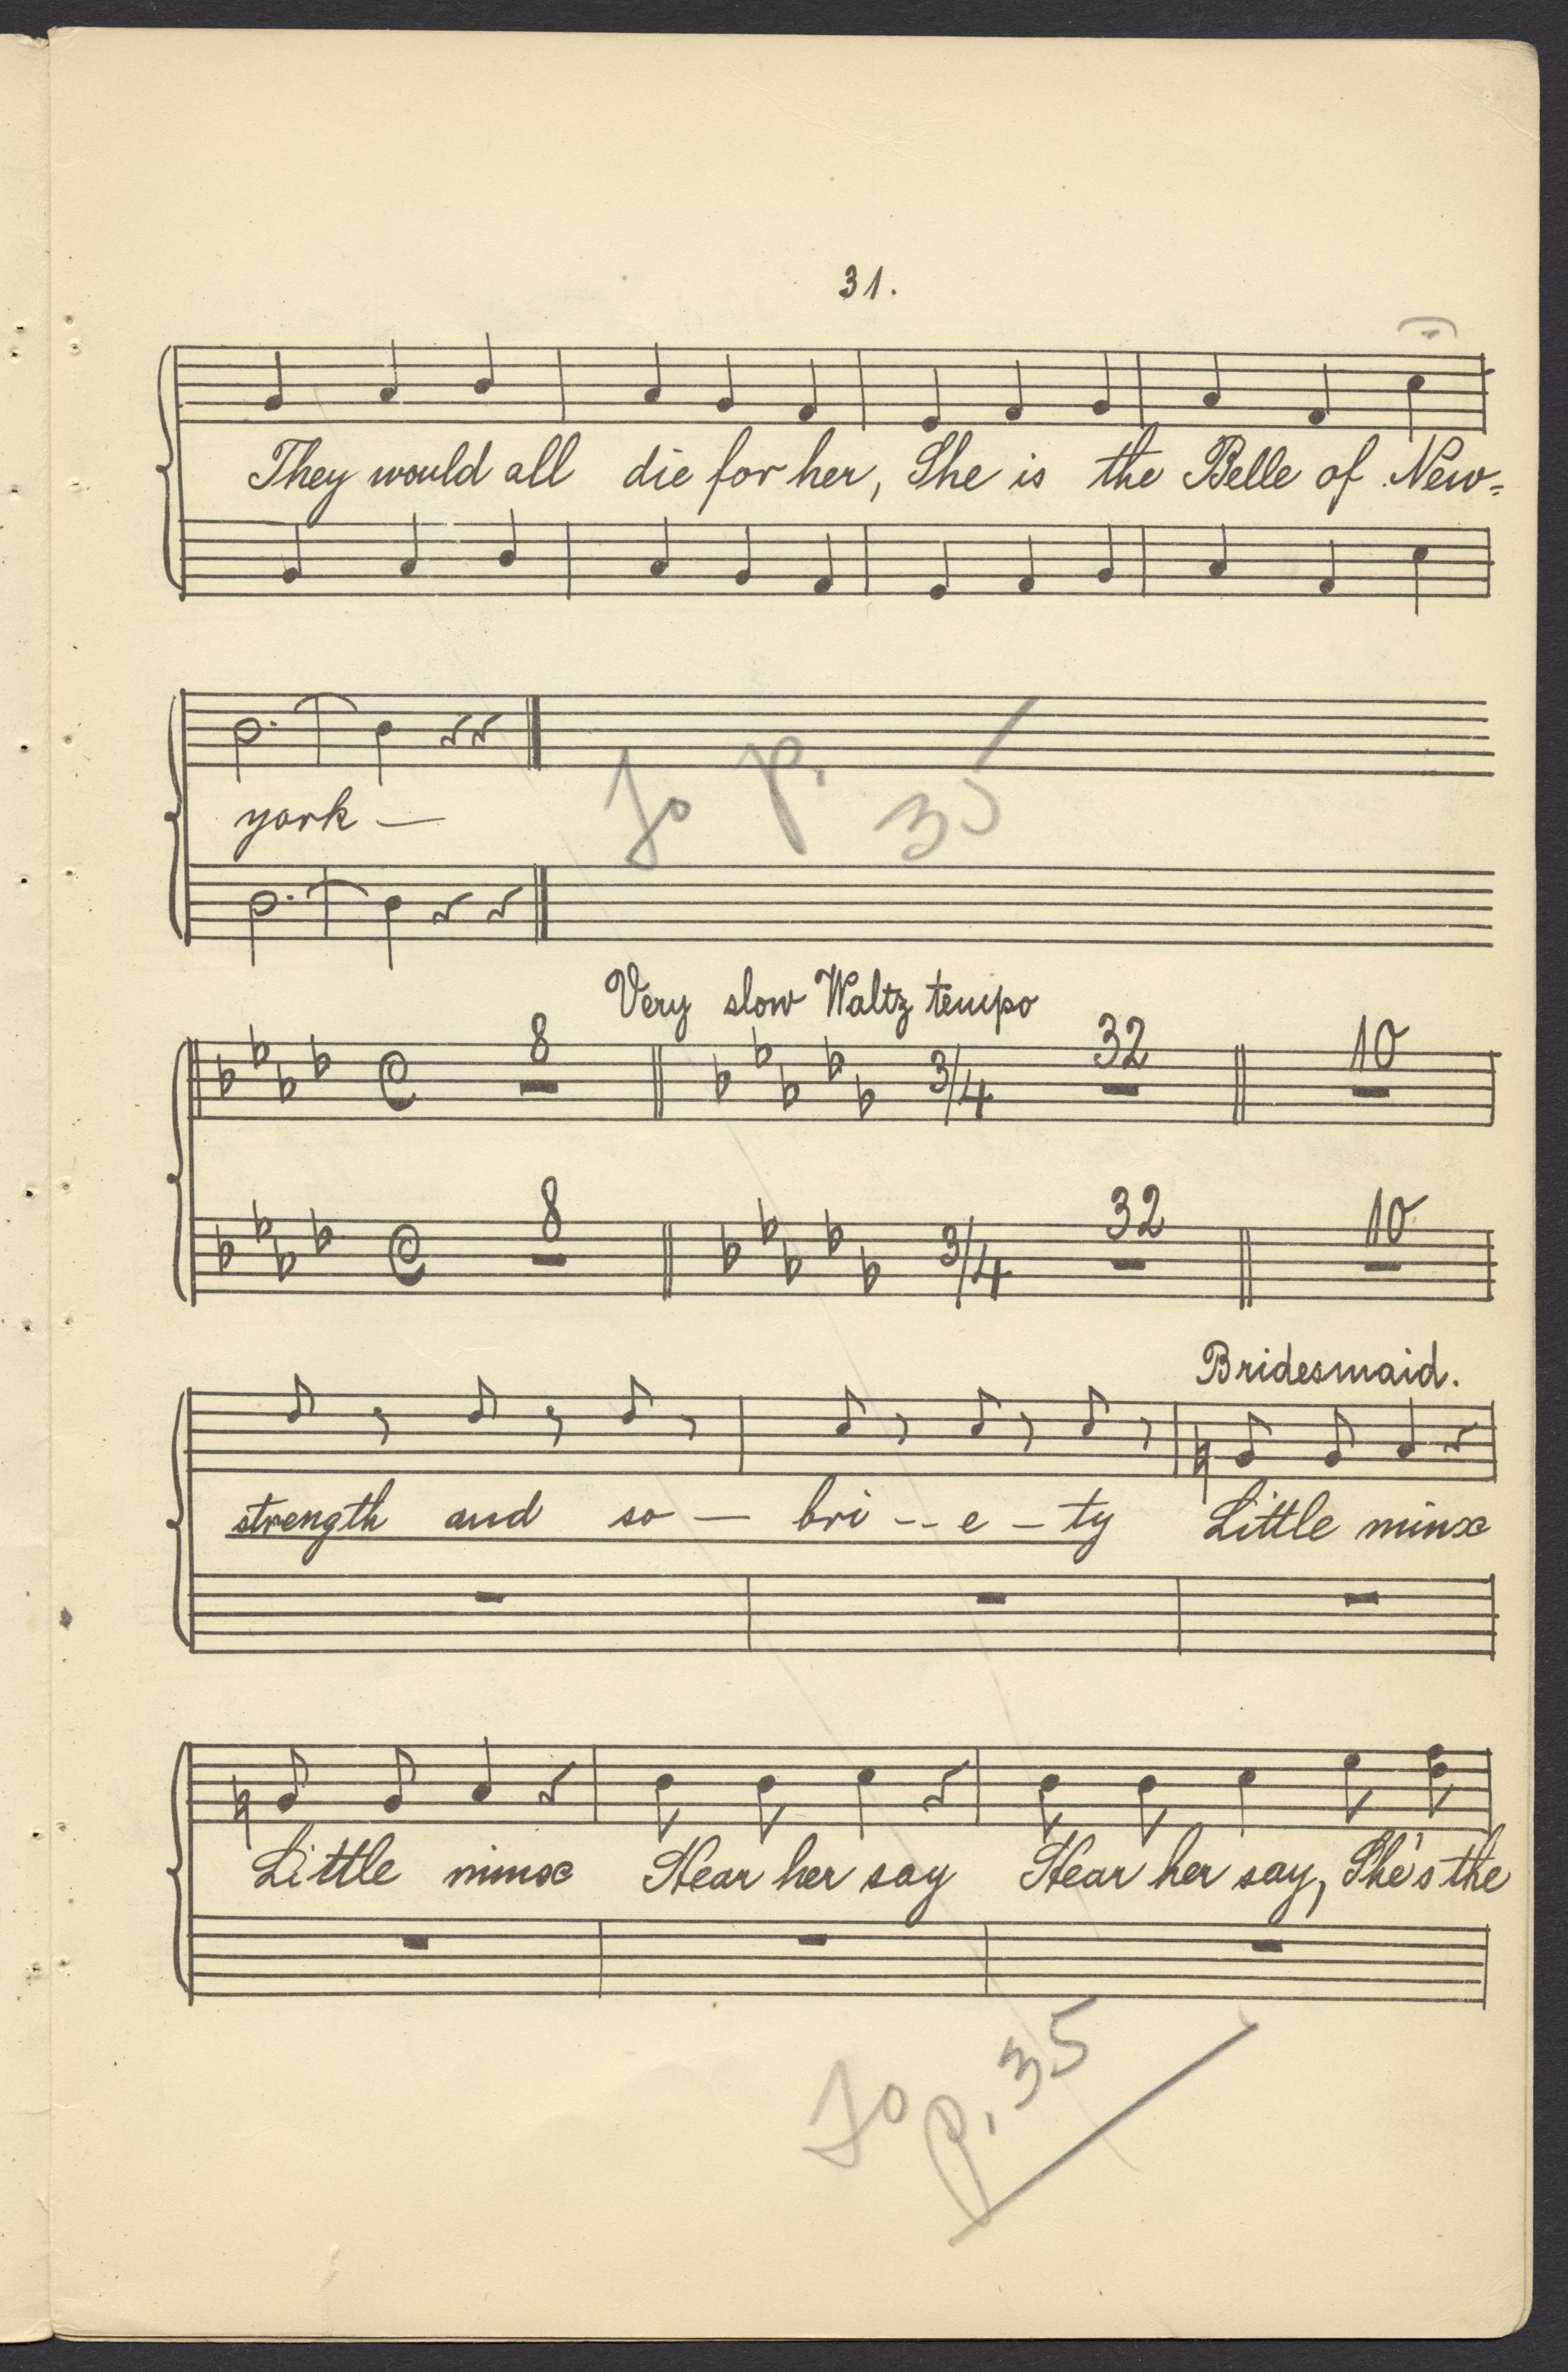 31.
They would all die for her, She is the Belle of New=
york —
To p. 35
Very slow Waltz tempo
8 3/4 32 10
8 3/4 32 10
Bridesmaid.
strength and so — bri -- e – ty Little minx
Little minx Hear her say Hear her say, She's the
To p. 35